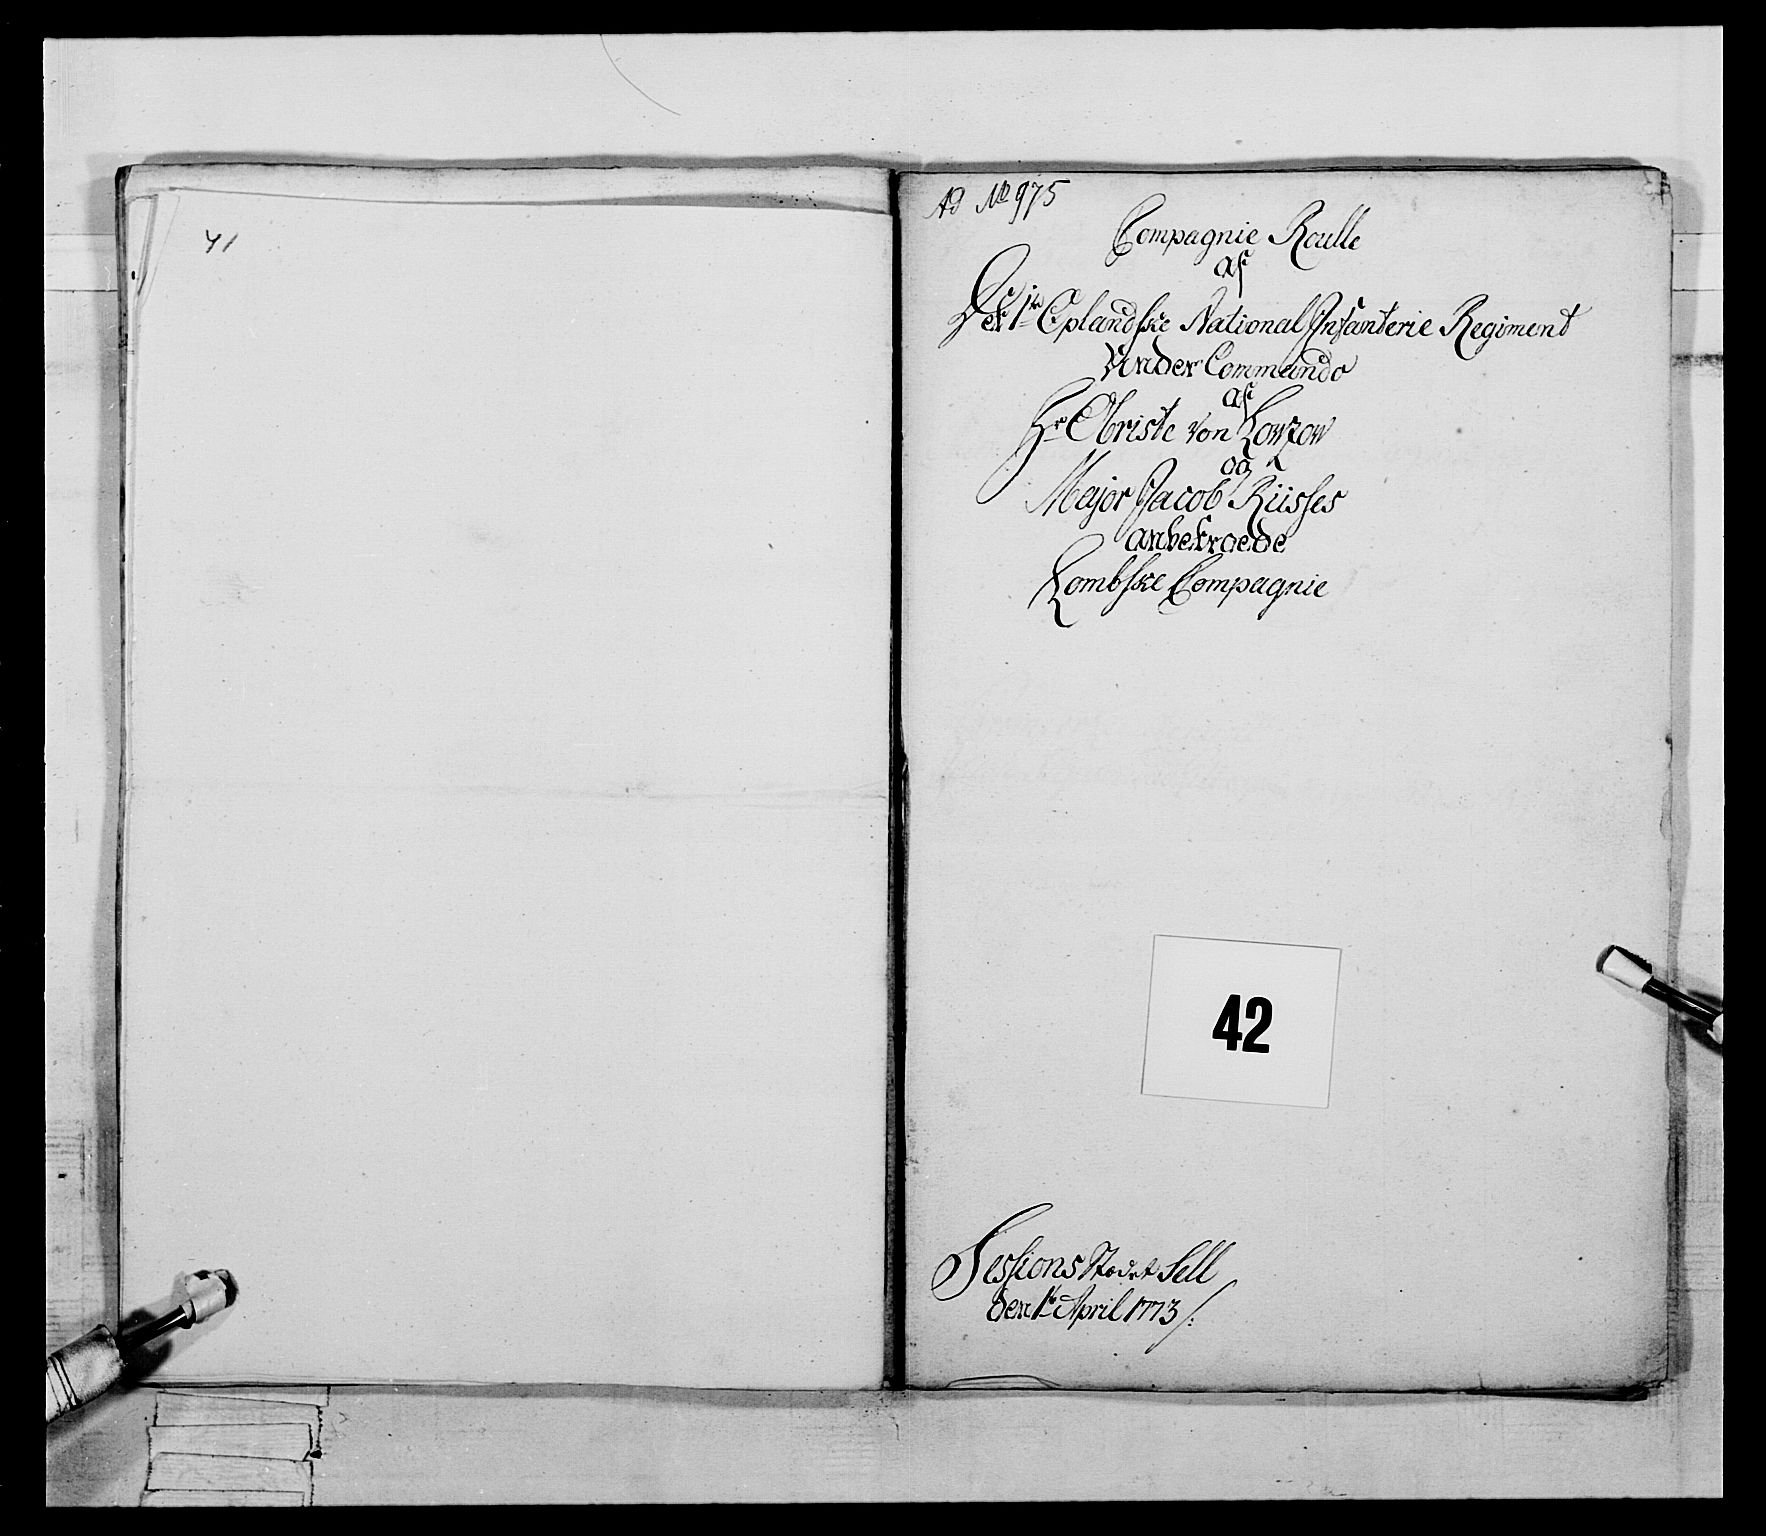 41
Ad No 975
Compagnie Roulle
af
Det 1te Oplandske National Infanterie Regiment
Under Commando
af
Hr Obriste von Lowzow
og
Major Jacob Riisses
anbetroede
Lombske Compagnie
42
Sessions Stædet Sell
den 1te April 1773/: